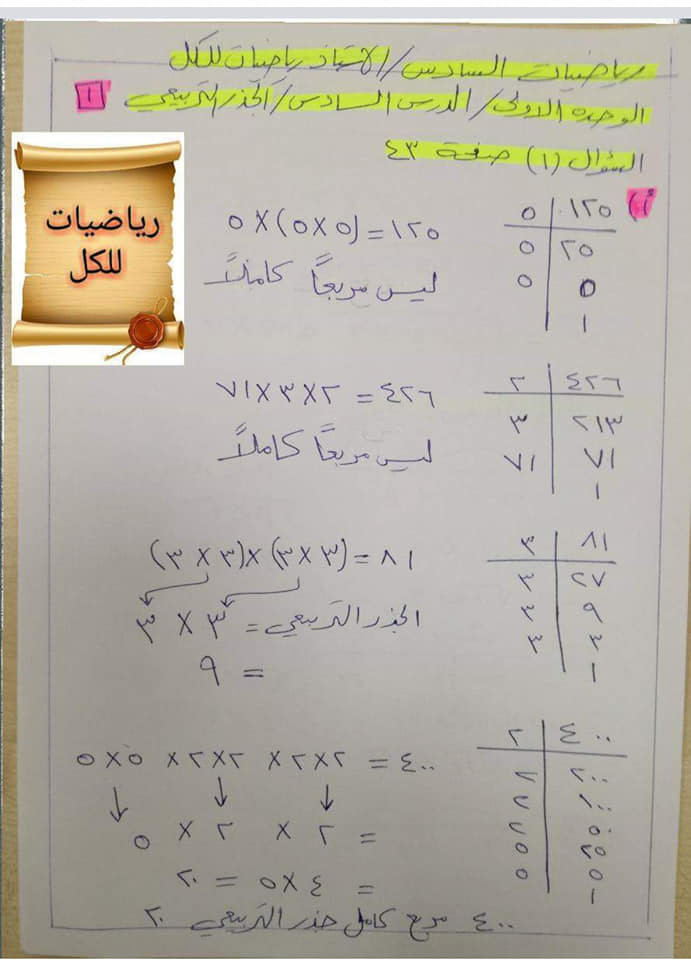 رياضيات السادس / الأستاذ رياضيات للكل
الوحدة الاولى / الدرس السادس / الجذر التربيعي ١
السؤال (١) صفحة ٤٣
رياضيات
للكل
أ)
١٢٥ | ٥
٢٥ | ٥
٥ | ٥
١
١٢٥ = (٥ X ٥) X ٥
ليس مربعاً كاملاً
٤٢٦ | ٢
٢١٣ | ٣
٧١ | ٧١
١
٤٢٦ = ٢ X ٣ X ٧١
ليس مربعاً كاملاً
٨١ | ٣
٢٧ | ٣
٩ | ٣
٣ | ٣
١
٨١ = (٣ X ٣) X (٣ X ٣)
الجذر التربيعي = ٣ X ٣
= ٩
٤٠٠ | ٢
٢٠٠ | ٢
١٠٠ | ٢
٥٠ | ٢
٢٥ | ٥
٥ | ٥
١
٤٠٠ = ٢ X ٢ X ٢ X ٢ X ٥ X ٥
= ٢ X ٢ X ٥
= ٤ X ٥ = ٢٠
٤٠٠ مربع كامل جذر التربيعي ٢٠